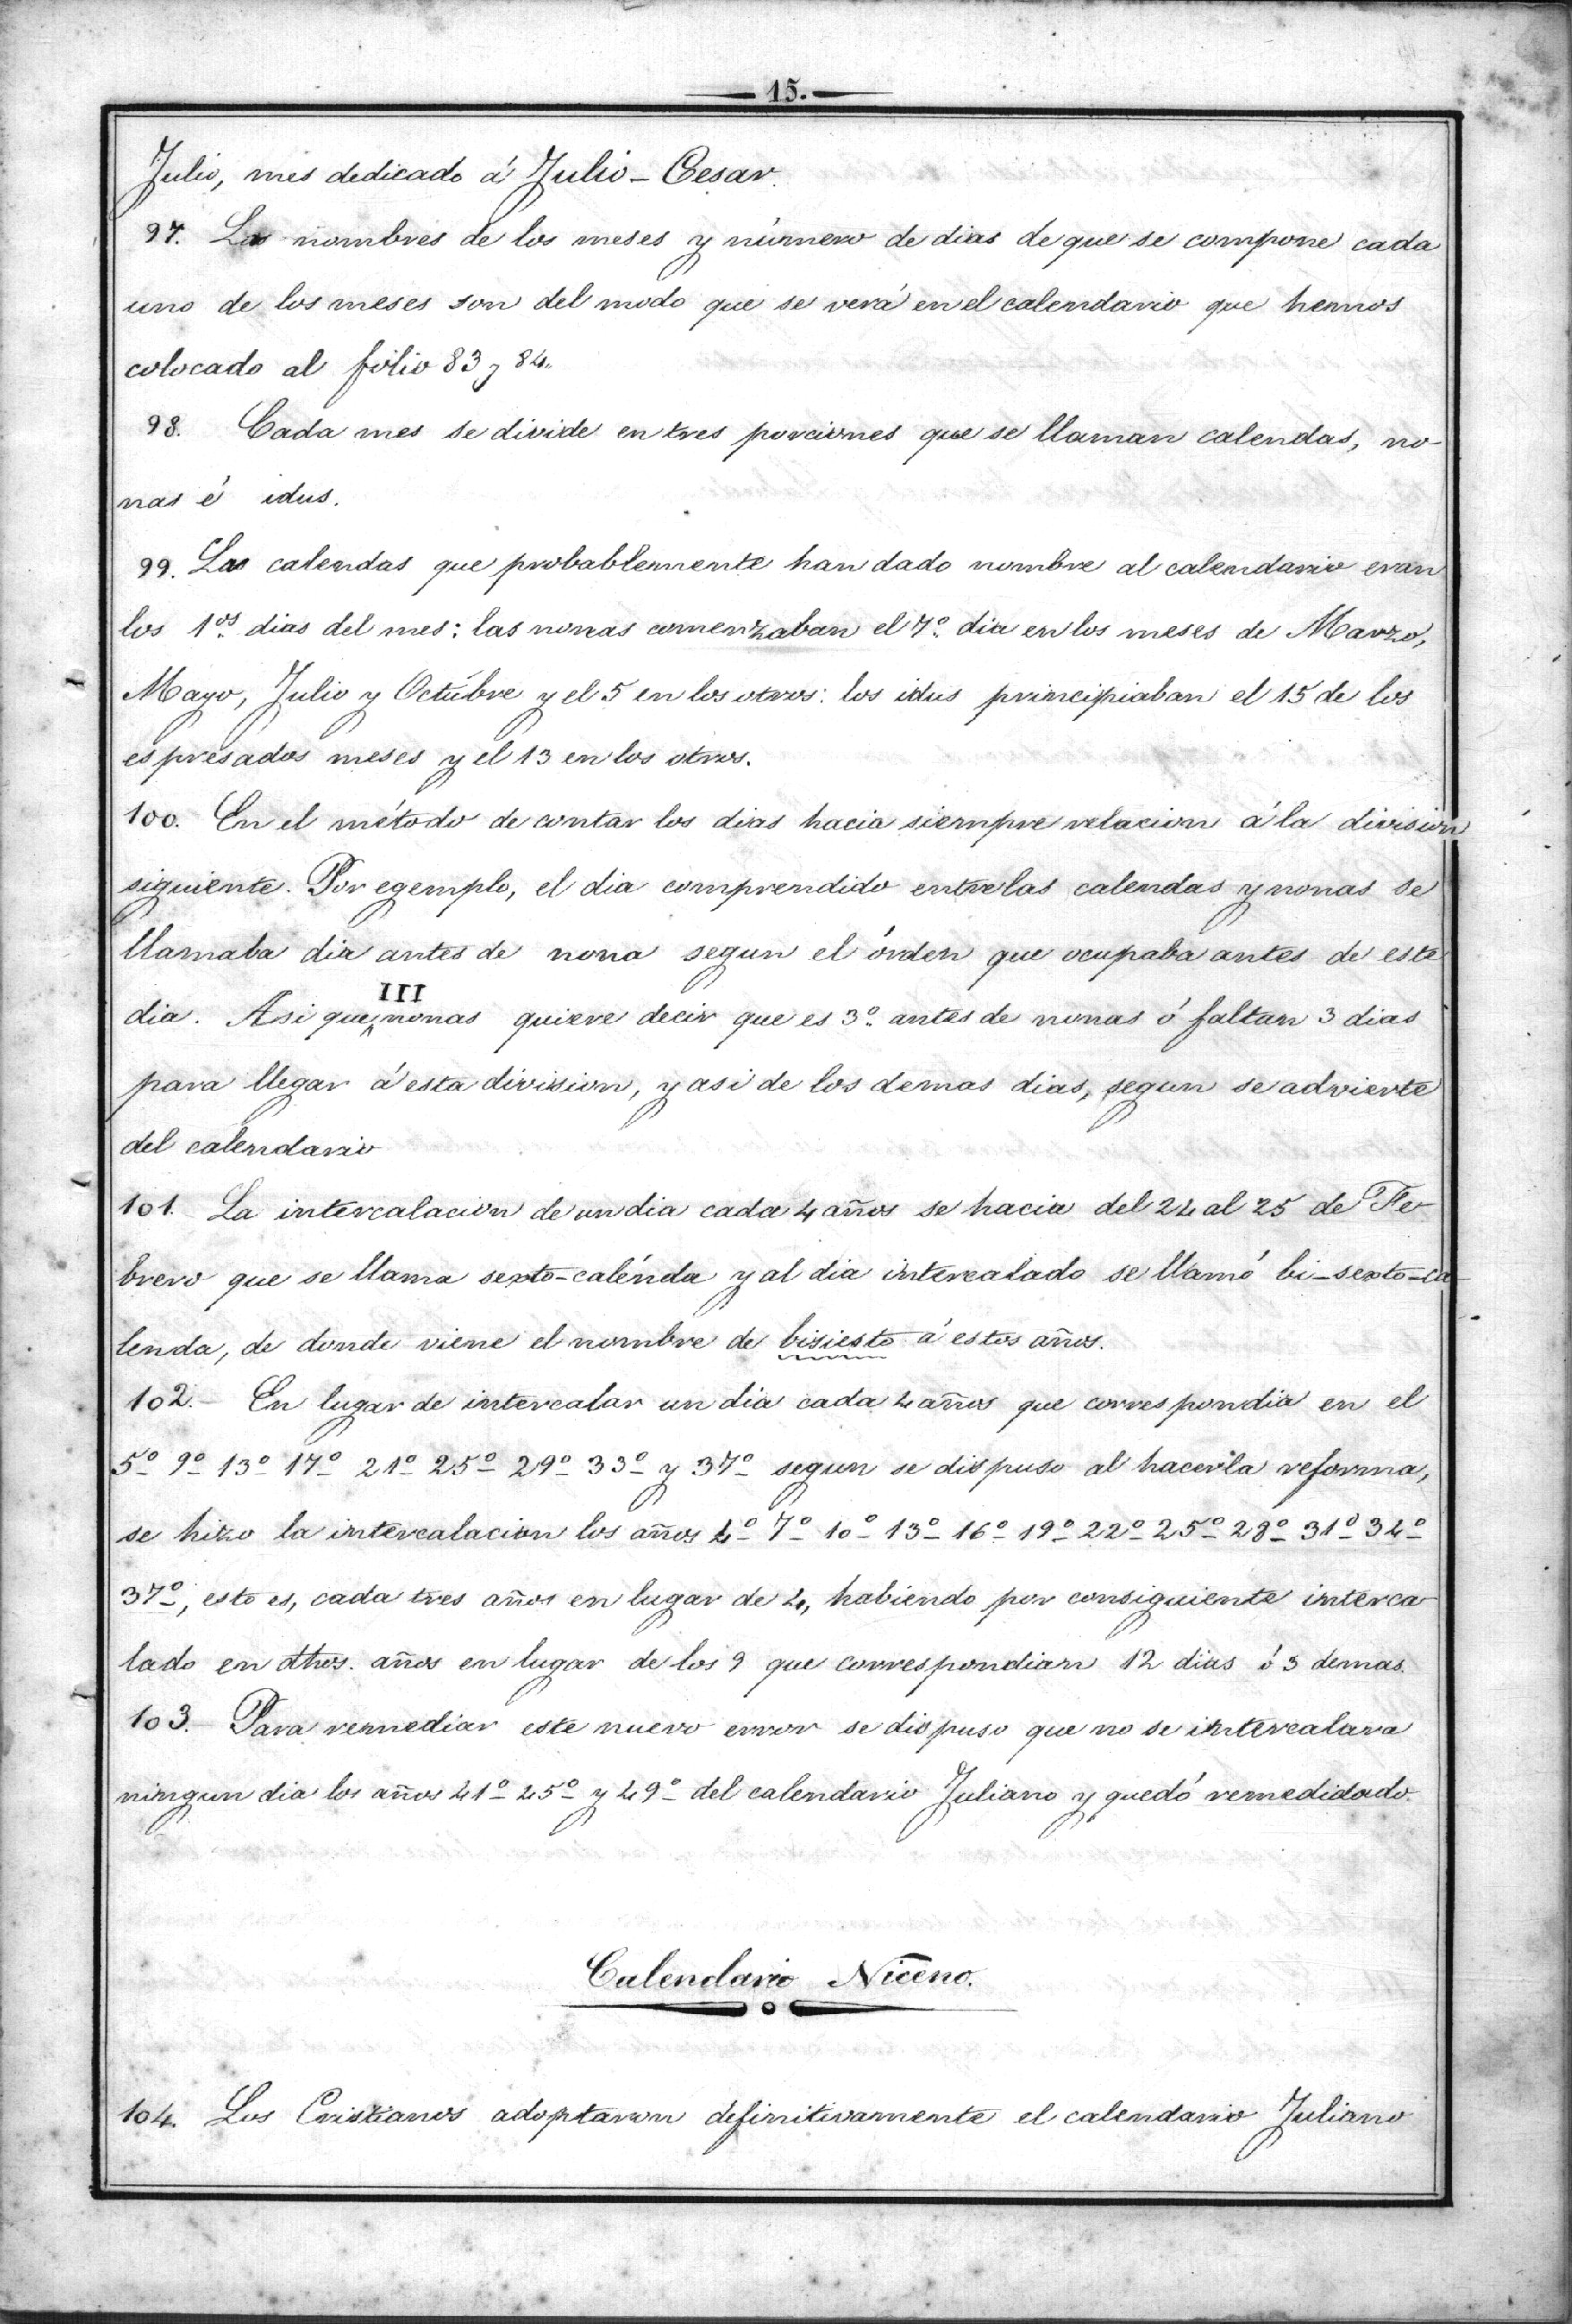 15.
Julio, mes dedicado á Julio-Cesar.
97. Los nombres de los meses y número de dias de que se compone cada
uno de los meses son del modo que se verá en el calendario que hemos
colocado al fólio 83 y 84.
98. Cada mes se divide en tres porciones que se llaman calendas, no-
nas é idus.
99. Las calendas que probablemente han dado nombre al calendario eran
los 1os. dias del mes: las nonas comenzaban el 7º dia en los meses de Marzo,
Mayo, Julio y Octúbre y el 5 en los otros: los idus principiaban el 15 de los
espresados meses y el 13 en los otros.
100. En el método de contar los dias hacia siempre relacion á la division
siguiente. Por egemplo, el dia comprendido entre las calendas y nonas se
llamaba dia antes de nona segun el órden que ocupaba antes de este
dia. Asi que III nonas quiere decir que es 3º antes de nonas ó faltan 3 dias
para llegar á esta division, y asi de los demas dias, segun se advierte
del calendario
101. La intercalacion de un dia cada 4 años se hacia del 24 al 25 de Fe-
brero que se llama sexto-calénda y al dia intercalado se llamó bi-sexto-ca-
lenda, de donde viene el nombre de bisiesto á estos años.
102.- En lugar de intercalar un dia cada 4 años que correspondia en el
5º 9º 13º 17º 21º 25º 29º 33º y 37º segun se dispuso al hacer la reforma,
se hizo la intercalacion los años 4º 7º 10º 13º 16º 19º 22º 25º 28º 31º 34º
37º, esto es, cada tres años en lugar de 4, habiendo por consiguiente interca-
lado en dhos. años en lugar de los 9 que correspondian 12 dias ó 3 demas.
103.- Para remediar este nuevo error se dispuso que no se intercalara
ningun dia los años 41º 45º y 49º del calendario Juliano y quedó remedidado.
Calendario Niceno.
104. Los Cristianos adoptaron definitivamente el calendario Juliano